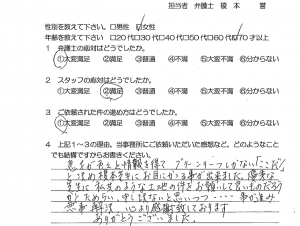 担当者 弁護士 榎本 誉
性別を教えて下さい。□男性 ☑女性
年齢を教えて下さい □20代□30代□40代□50代□60代☑70才以上
1 弁護士の応対はどうでしたか。
①大変満足 ②満足 ③普通 ④不満 ⑤大変不満 ⑥分からない
2 スタッフの応対はどうでしたか。
①大変満足 ②満足 ③普通 ④不満 ⑤大変不満 ⑥分からない
3 ご依頼された件の進め方はどうでしたか。
①大変満足 ②満足 ③普通 ④不満 ⑤大変不満 ⑥分からない
4 上記1~3の理由、当事務所にご依頼いただいた感想など、どのようなこと
でも結構ですからお書きください。
情報を得て グリーンリーフしかない「ここだ」
と決め榎本先生にお目にかかる事が出来ました。優秀な
先生に私共のような土地の件をお願いして良いものだろう
かとためらい、申し訳ないと思いつつ・・・・事が進み
無事解決 心より感謝致しております
ありがとうございました。